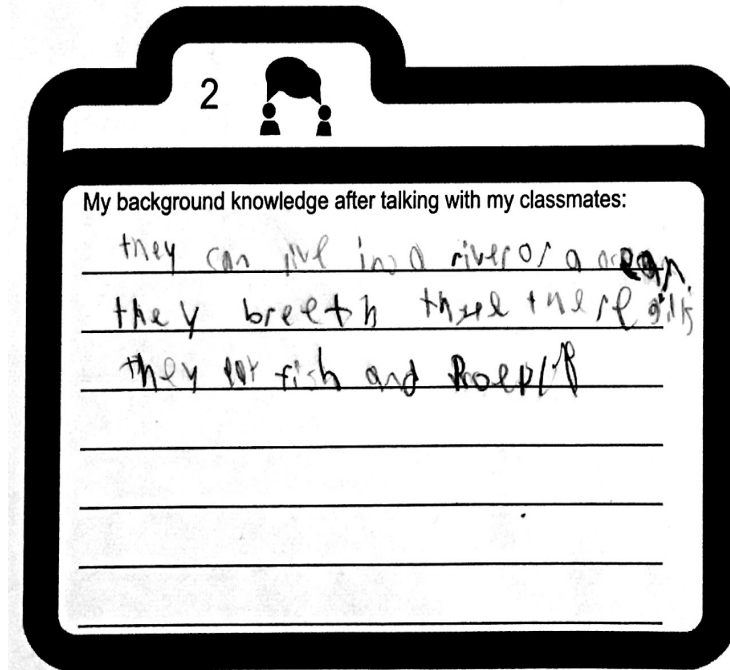 2
My background knowledge after talking with my classmates:
they can live in a river or a ocean.
they breeth there gills
they eat fish and